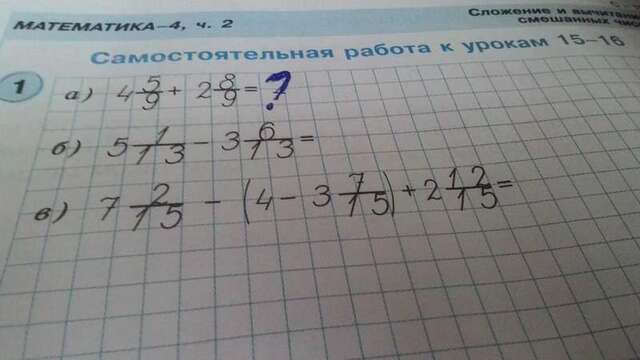 МАТЕМАТИКА–4, ч. 2
Сложение и вычитание
смешанных
Самостоятельная работа к урокам 15–16
1 а) 4 5/9 + 2 8/9 = ?
б) 5 1/13 − 3 6/13 =
в) 7 2/15 − (4 − 3 7/15) + 2 12/15 =